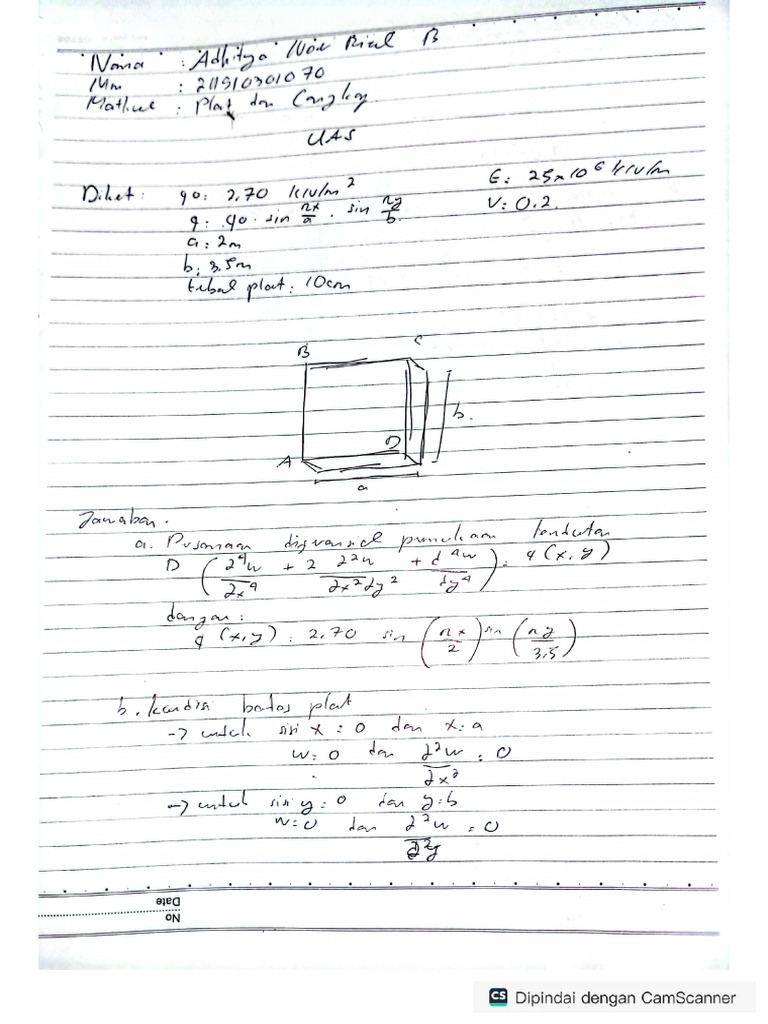 Nama : Adhitya Nur Rizal B
Nim : 211910301070
Matkul : Plat dan Cangkang
UAS
Diket : q0 : 2,70 kN/m² E : 25x10⁶ kN/m
q : q0 . sin πx/a . sin πy/b V : 0.2
a : 2m
b : 3.5m
tebal plat : 10cm
B C
A D b.
a
Jawaban.
a. Persamaan diferensial permukaan lendutan
D (∂⁴w/∂x⁴ + 2 ∂²w/∂x²∂y² + ∂⁴w/∂y⁴) : q (x,y)
dengan :
q (x,y) : 2.70 sin (πx/2) sin (πy/3,5)
b. kondisi batas plat
-> untuk sisi x : 0 dan x : a
w : 0 dan ∂²w/∂x² : 0
-> untuk sisi y : 0 dan y : b
w : 0 dan ∂²w/∂²y : 0
Date
No
CS Dipindai dengan CamScanner